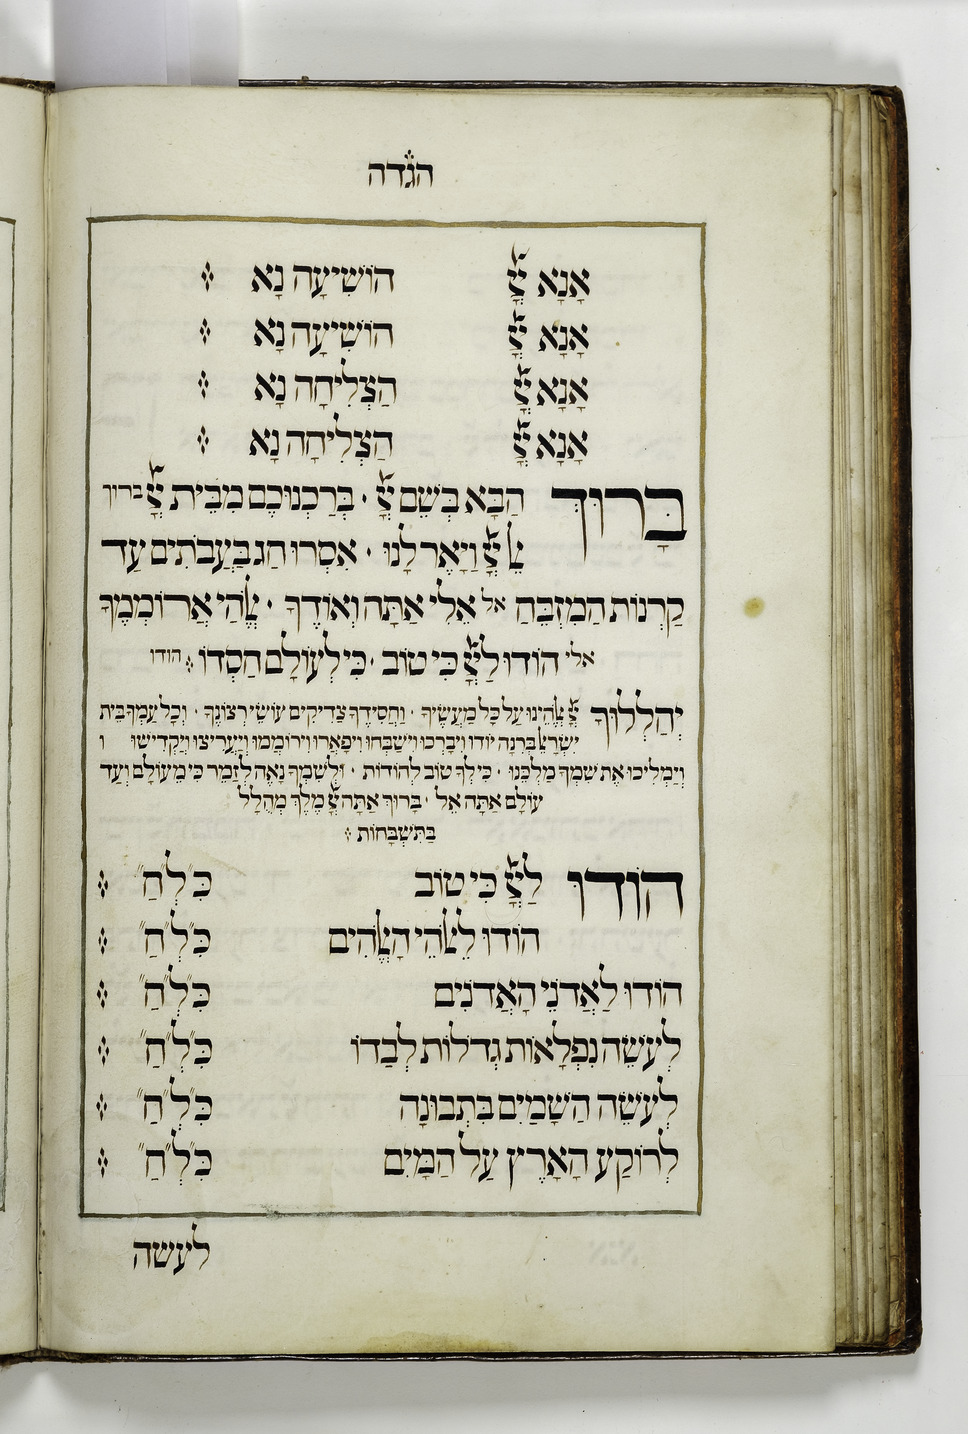 הגדה
אָנָא יְיָ הוֹשִׁיעָה נָּא
אָנָא יְיָ הוֹשִׁיעָה נָּא
אָנָא יְיָ הַצְלִיחָה נָא
אָנָא יְיָ הַצְלִיחָה נָא
בָּרוּךְ הַבָּא בְּשֵׁם יְיָ · בֵּרַכְנוּכֶם מִבֵּית יְיָ ברוך
אֵל יְיָ וַיָּאֶר לָנוּ · אִסְרוּ חַג בַּעֲבֹתִים עַד
קַרְנוֹת הַמִּזְבֵּחַ אל אֵלִי אַתָּה וְאוֹדֶךָּ · אֱלֹהַי אֲרוֹמְמֶךָּ
אלי הוֹדוּ לַיְיָ כִּי טוֹב · כִּי לְעוֹלָם חַסְדּוֹ הודו
יְהַלְלוּךָ יְיָ אֱלֹהֵינוּ עַל כָּל מַעֲשֶׂיךָ · וַחֲסִידֶיךָ צַדִּיקִים עוֹשֵׂי רְצוֹנֶךָ · וְכָל עַמְּךָ בֵּית
יִשְׂרָאֵל בְּרִנָּה יוֹדוּ וִיבָרְכוּ וִישַׁבְּחוּ וִיפָאֲרוּ וִירוֹמְמוּ וְיַעֲרִיצוּ וְיַקְדִּישׁוּ ו
וְיַמְלִיכוּ אֶת שִׁמְךָ מַלְכֵּנוּ · כִּי לְךָ טוֹב לְהוֹדוֹת · וּלְשִׁמְךָ נָאֶה לְזַמֵּר כִּי מֵעוֹלָם וְעַד
עוֹלָם אַתָּה אֵל · בָּרוּךְ אַתָּה יְיָ מֶלֶךְ מְהֻלָּל
בַּתִּשְׁבָּחוֹת
הוֹדוּ לַיְיָ כִּי טוֹב כִּ״לְ״חַ״
הוֹדוּ לֵאלֹהֵי הָאֱלֹהִים כִּ״לְ״חַ״
הוֹדוּ לַאֲדֹנֵי הָאֲדֹנִים כִּ״לְ״חַ״
לְעֹשֵׂה נִפְלָאוֹת גְּדֹלוֹת לְבַדּוֹ כִּ״לְ״חַ״
לְעֹשֵׂה הַשָּׁמַיִם בִּתְבוּנָה כִּ״לְ״חַ״
לְרוֹקַע הָאָרֶץ עַל הַמָּיִם כִּ״לְ״חַ״
לעשה